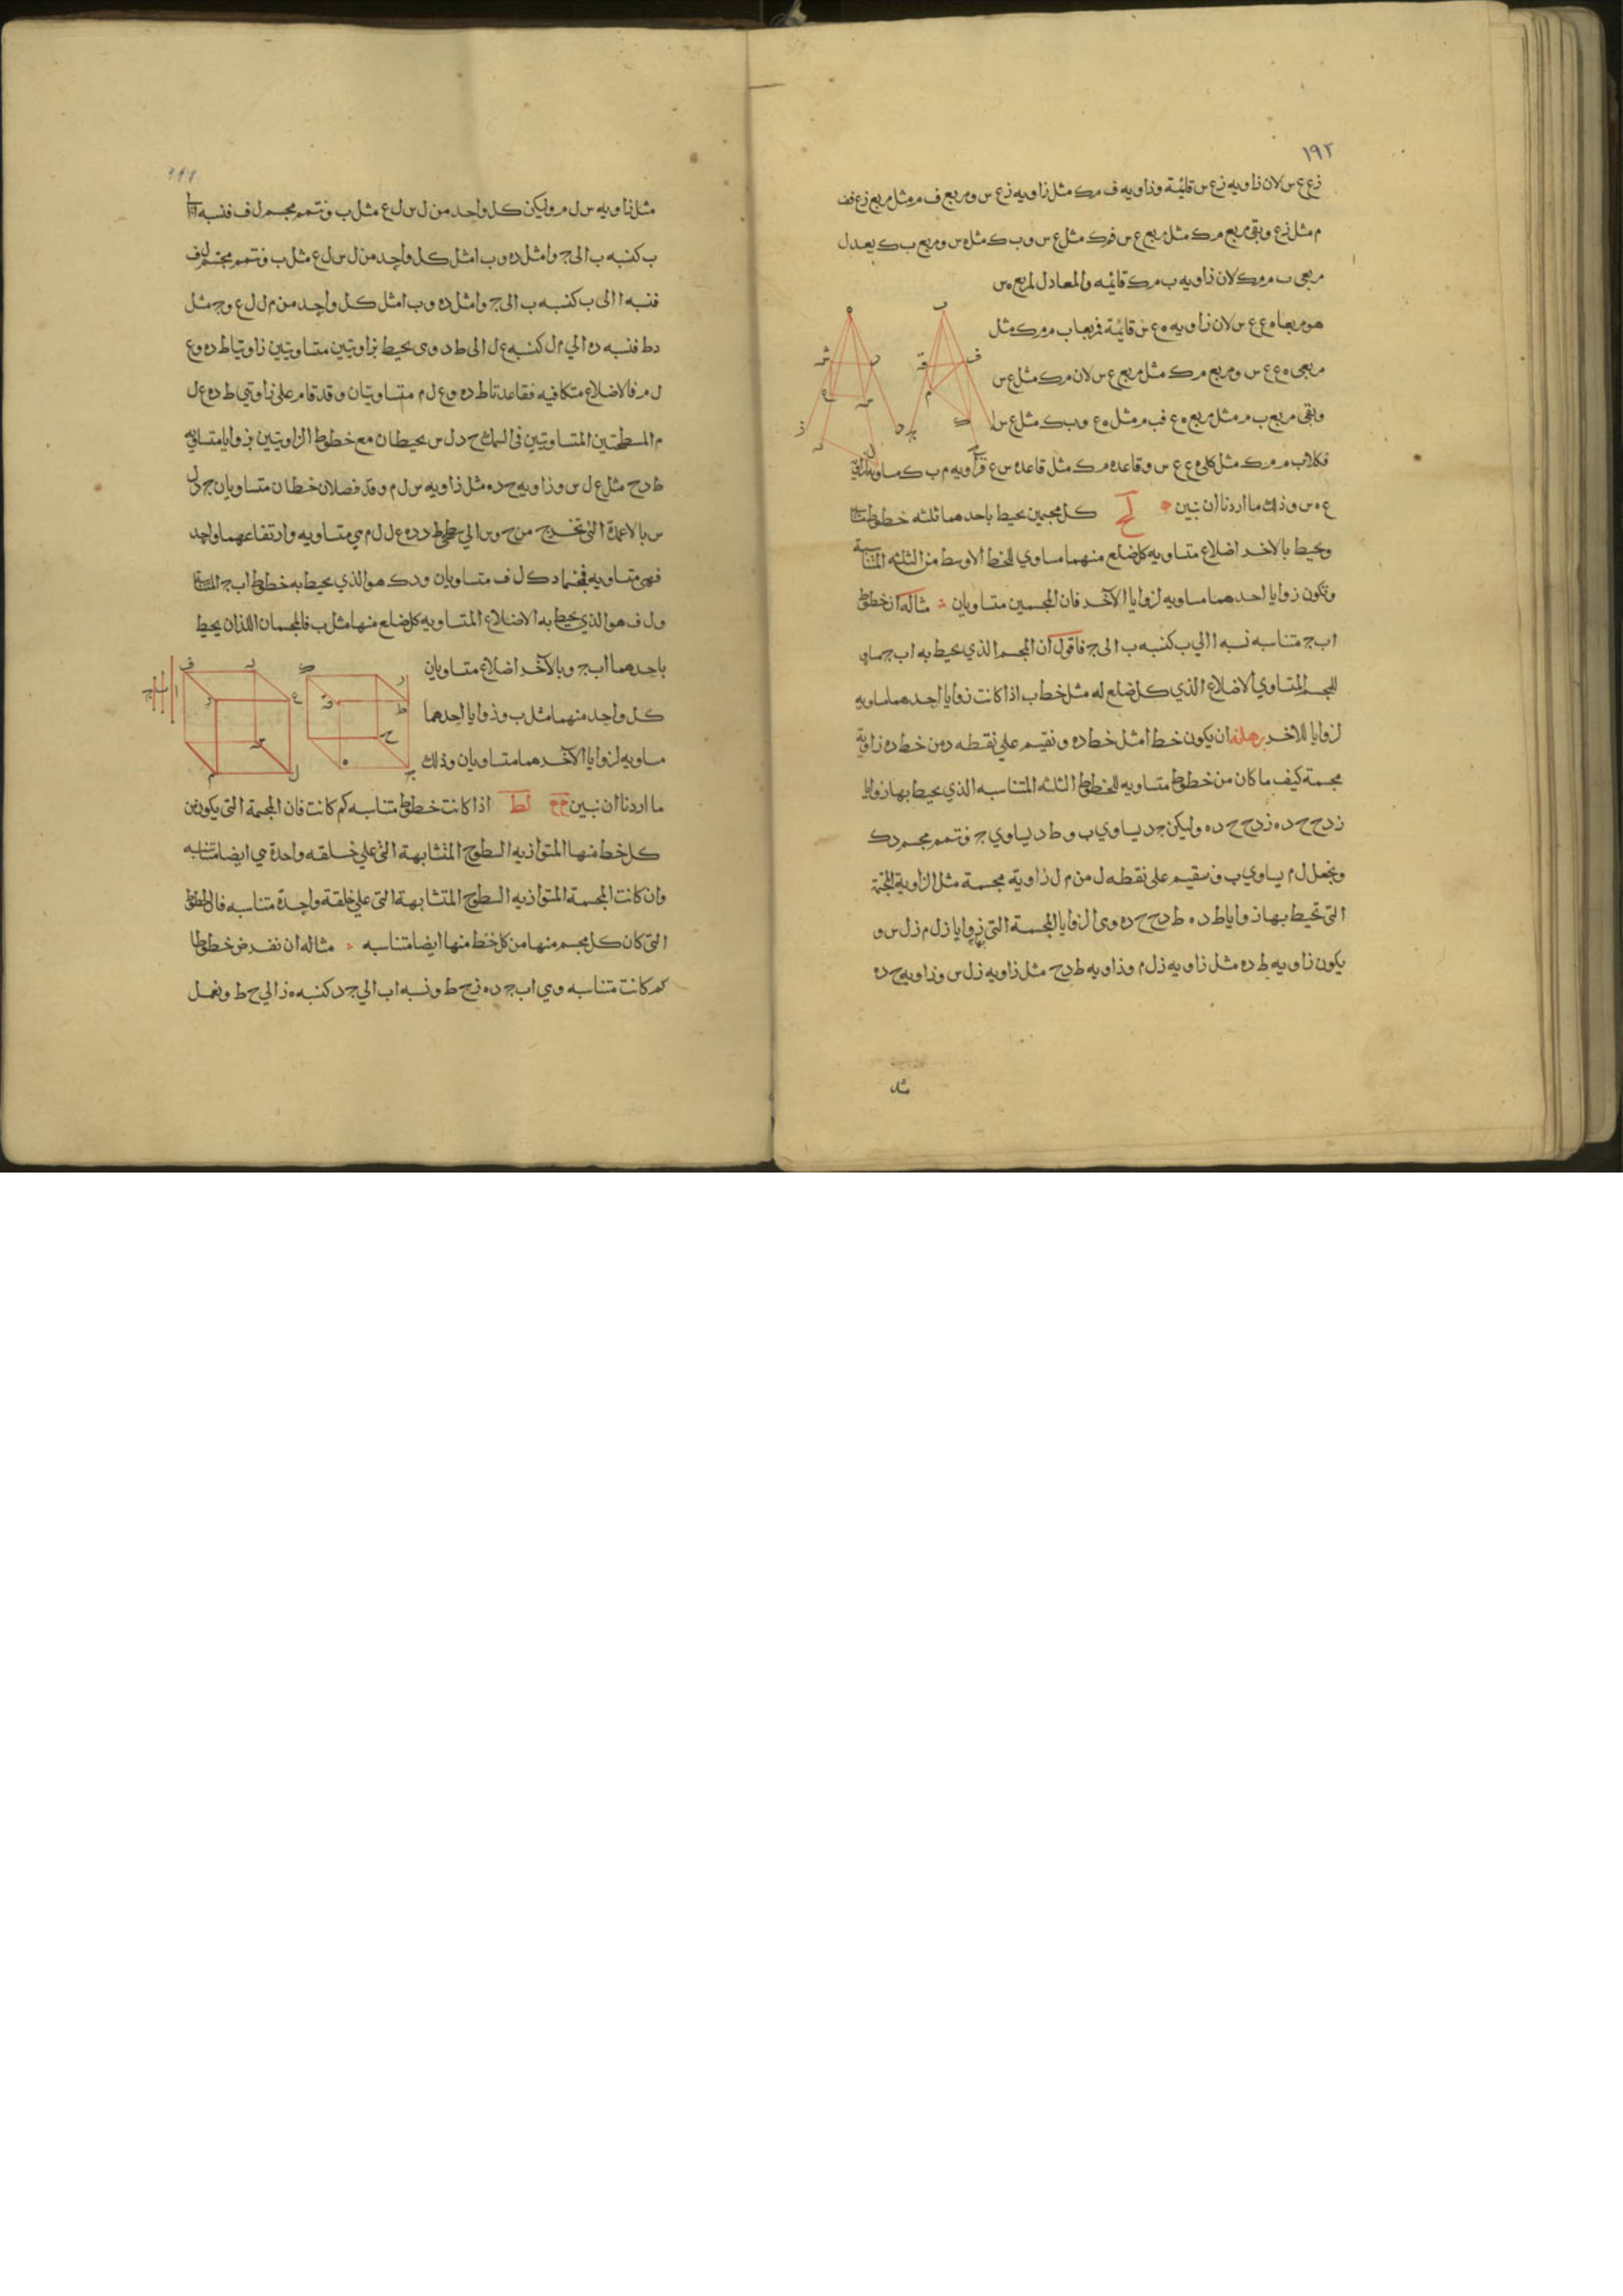 ١٩٢
زع ع س لان زاويه زع س قائمة وزاويه ف م ك مثل زاويه زع س ومربع ف م مثل مربع زع فف
م مثل زع وبقى مربع م ك مثل مربع ع س فمك مثل ع س وب ك مثل ه س ومربع ب ك يعدل
مربعى ب م م ك لان زاويه ب م ك قائمه والمعادل لمربع ه س
هو مربعا ه ع ع س لان زاويه ه ع س قائمة فمربعا ب م م ك مثل
مربعى ه ع ع س ومربع م ك مثل مربع ع س لان م ك مثل ع س
وبقى مربع ب م مثل مربع ه ع فب م مثل ه ع وب ك مثل
فكلا ب م م ك مثل كلى ه ع ع س وقاعدة م ك مثل قاعدة س ع فزاويه م ب ك مساويه لزاوية
ع ه س وذلك ما اردنا ان نبين لح كل مجسمين يحيط باحدهما ثلثه خطوط متناسبه
ويحيط بالاخر اضلاع متساويه كل ضلع منهما مساوي للخط الاوسط من الثلثه المتناسبة
وتكون زوايا احدهما مساويه لزوايا الآخر فان المجسمين متساويان مثاله ان خطوط
ا ب ج متناسبه نسبه ا الي ب كنسبه ب الى ج فاقول ان المجسم الذي يحيط به ا ب ج مساوٍ
للمجسم المتساوي الاضلاع الذي كل ضلع له مثل خط ب اذا كانت زوايا احدهما مساويه
لزوايا للاخر برهانه ان يكون خط ا مثل خط د ه ونقيم على نقطه د من خط د ه زاوية
مجسمة كيف ما كان من خطوط متساويه للخطوط الثلثه المتناسبه الذي يحيط بها زوايا
ز د ح ح د ه ز د ح ح د ه وليكن ج د يساوي ب و ط د يساوي ج ونتمم مجسم د ك
ونجعل ل م يساوي ب ونقيم على نقطه ل من م ل زاوية مجسمة مثل الزاوية المجسمة
التى تحيط بها زوايا ط د ه ط د ح ح د ه وهى الزوايا المجسمة التى بها زوايا ز ل م ز ل س و
يكون زاويه ط د ه مثل زاويه ز ل م وزاويه ط د ح مثل زاويه ز ل س وزاويه ح د ه
مثل
مثل زاويه س ل م وليكن كل واحد من ل س ل ع مثل ب ونتمم مجسم ل ف فنسبه ا الى
ب كنسبه ب الى ج وا مثل د ه وب مثل كل واحد من ل س ل ع مثل ب ونتمم مجسم ل ف
فنسبه ا الى ب كنسبه ب الى ج وا مثل د ه وب مثل كل واحد من م ل ل ع وج مثل
د ط فنسبه د ه الي م ل كنسبه ع ل الى ط د وهى يحيط بزاويتين متساويتين زاويتا ط د ه وع
ل م فالاضلاع متكافيه فقاعدتا ط د ه وع ل م متساويتان وقد قام على زاويتي ط د ه ع ل
م المسطحتين المتساويتين في السمك ح د ل س يحيطان مع خطوط الزاويتين بزوايا متساويه
ط د ح مثل ع ل س وزاويه ح د ه مثل زاويه س ل م وقد فصلان خطان متساويان ح د ل
س بالاعمدة التى تخرج من ح وس الي سطحى ط د د ه ع ل ل م هي متساويه وارتفاعهما واحد
فهى متساويه فمجسما د ك ل ف متساويان ود ك هو الذي يحيط به خطوط ا ب ج المتناسبه
ول ف هو الذي يحيط به الاضلاع المتساويه كل ضلع منها مثل ب فالمجسمان اللذان يحيط
باحدهما ا ب ج وبالآخر اضلاع متساويان
كل واحد منهما مثل ب وزوايا احدهما
مساويه لزوايا الآخر هما متساويان وذلك
ما اردنا ان نبين لط اذا كانت خطوط متناسبه كم كانت فان المجسمة التى يكون من
كل خط منها المتوازيه السطوح المتشابهة التى على خلقه واحدة هي ايضا متناسبه
وان كانت المجسمة المتوازيه السطوح المتشابهة التى على خلقة واحدة متناسبه فالخطوط
التى كان كل مجسم منها من كل خط منها ايضا متناسبه مثاله ان نفرض خطوطا
كم كانت متناسبه وهي ا ب ج د ه ز ح ط ونسبه ا ب الي ج د كنسبه ه ز الي ح ط ونعمل